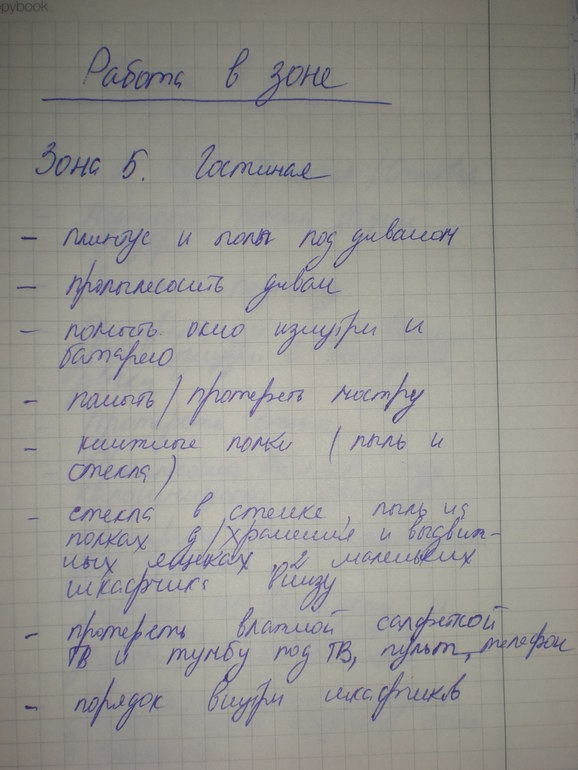 opybook
Работа в зоне
Зона 5. Гостиная
- плинтус и полы под диваном
- пропылесосить диван
- помыть окно изнутри и
батарею
- помыть/протереть люстру
- книжные полки (пыль и
стекла)
- стекла в стенке, пыль на
полках д/хранения и выдвиж-
ных ящиках, 2 маленьких
шкафчика внизу
- протереть влажной салфеткой
ТВ и тумбу под ТВ, пульт, телефон
- порядок внутри шкафчиков